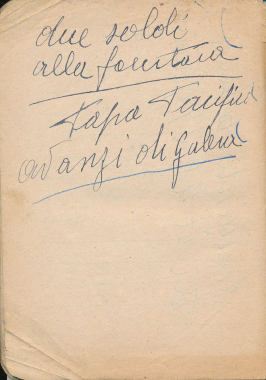 due soldi
alla fontana
Papa Pacifico
avanzi di galera